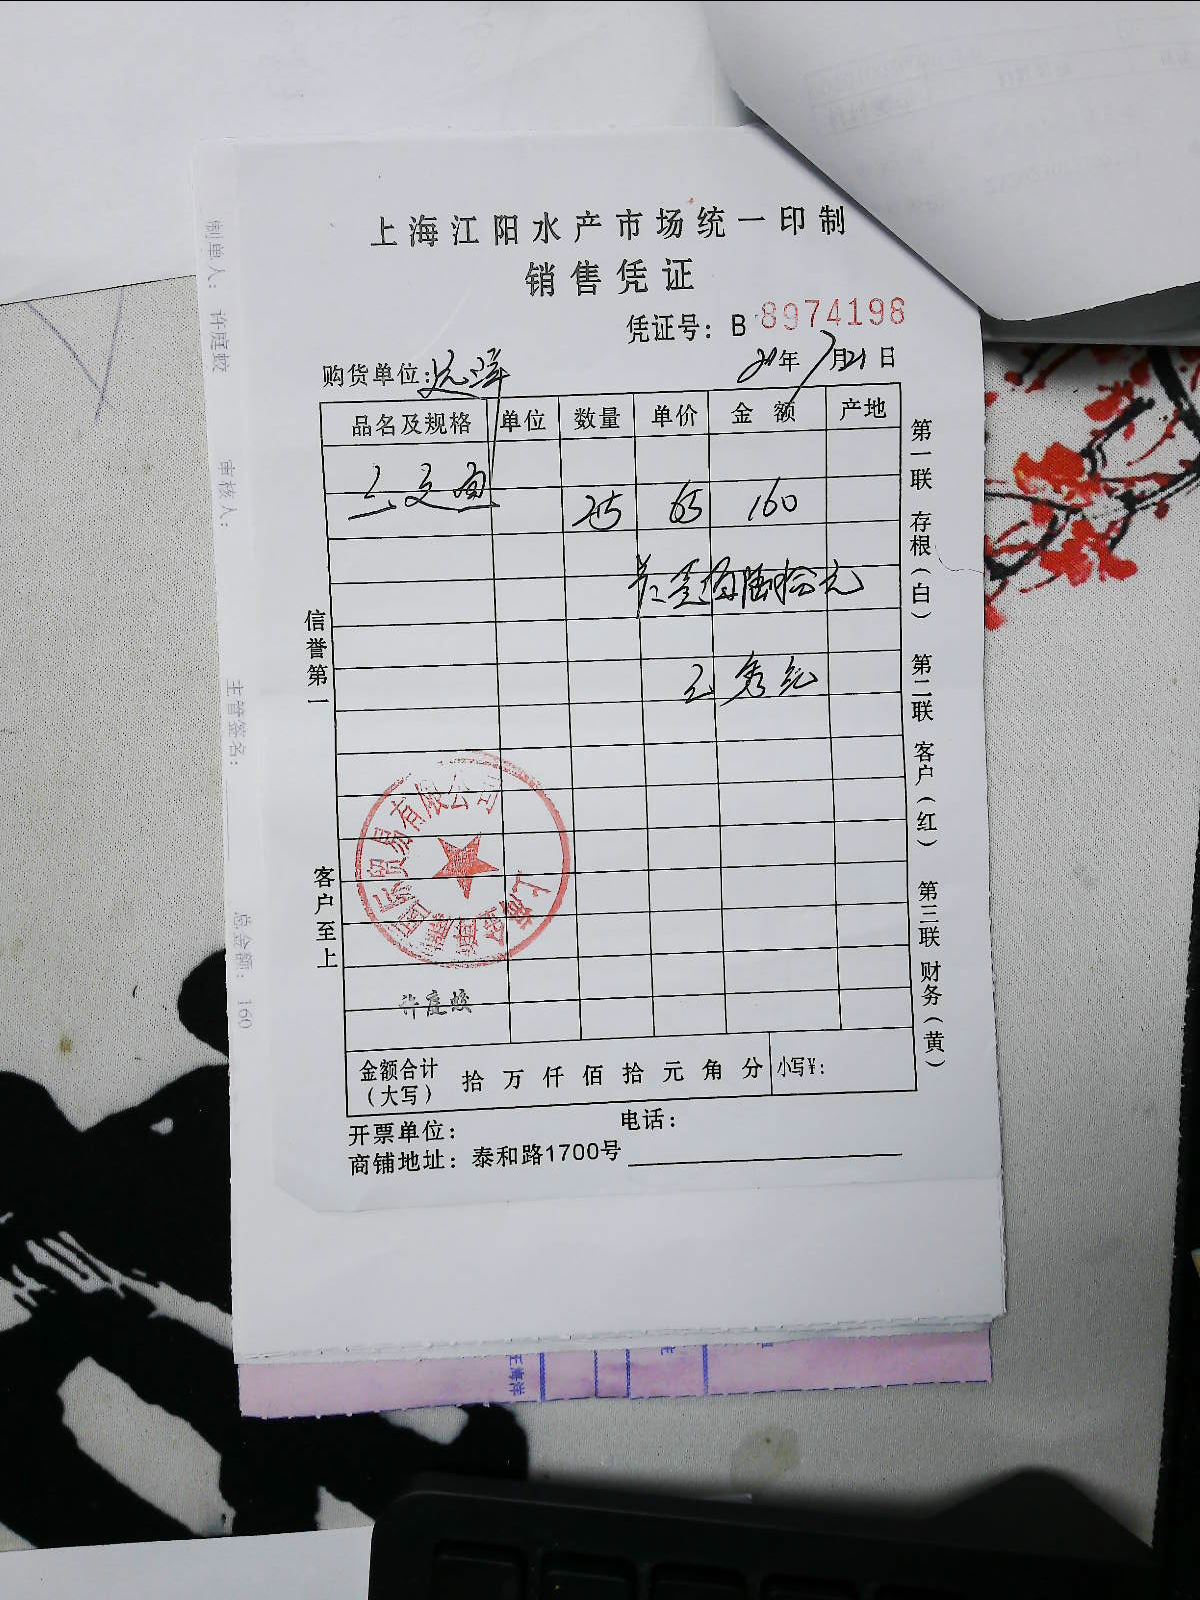 上海江阳水产市场统一印制
销售凭证
凭证号：B 8974198
购货单位：远洋 21年7月21日
品名及规格 单位 数量 单价 金额 产地
三文鱼 2.5 65 160
共壹佰陆拾元
王秀纪
信誉第一
客户至上
第一联 存根（白） 第二联 客户（红） 第三联 财务（黄）
国际贸易有限公司
许庭蛟
金额合计（大写） 拾 万 仟 佰 拾 元 角 分 小写¥：
开票单位： 电话：
商铺地址：泰和路1700号
制单人： 许庭蛟 审核人： 主管签名： 总金额： 160
王海洋